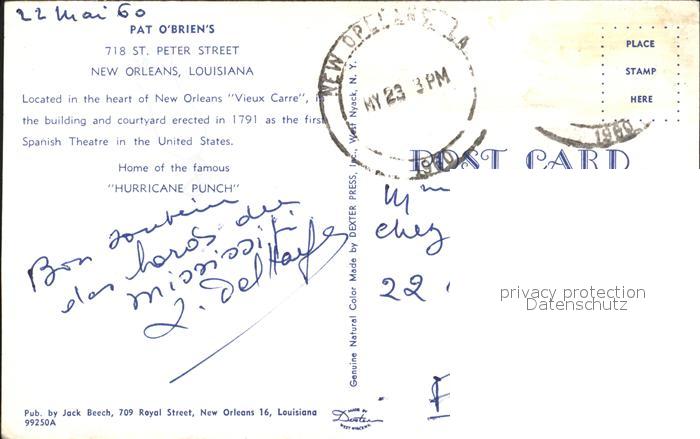 22 Mai 60
PAT O'BRIEN'S
718 ST. PETER STREET
NEW ORLEANS, LOUISIANA
Located in the heart of New Orleans "Vieux Carre", i
the building and courtyard erected in 1791 as the first
Spanish Theatre in the United States.
Home of the famous
"HURRICANE PUNCH"
Bon souvenir
des bords du
Mississipi
Pub. by Jack Beech, 709 Royal Street, New Orleans 16, Louisiana
99250A
Genuine Natural Color Made by DEXTER PRESS, Inc., West Nyack, N. Y.
MADE BY
Dexter
WEST NYACK, N.Y.
NEW ORLEANS, LA
MY 23 3 PM
1960
1960
PLACE
STAMP
HERE
POST CARD
Mme
chez
22
F
privacy protection
Datenschutz